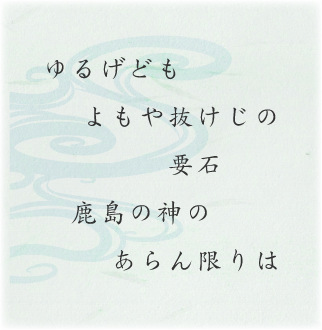 ゆるげども
よもや抜けじの
要石
鹿島の神の
あらん限りは